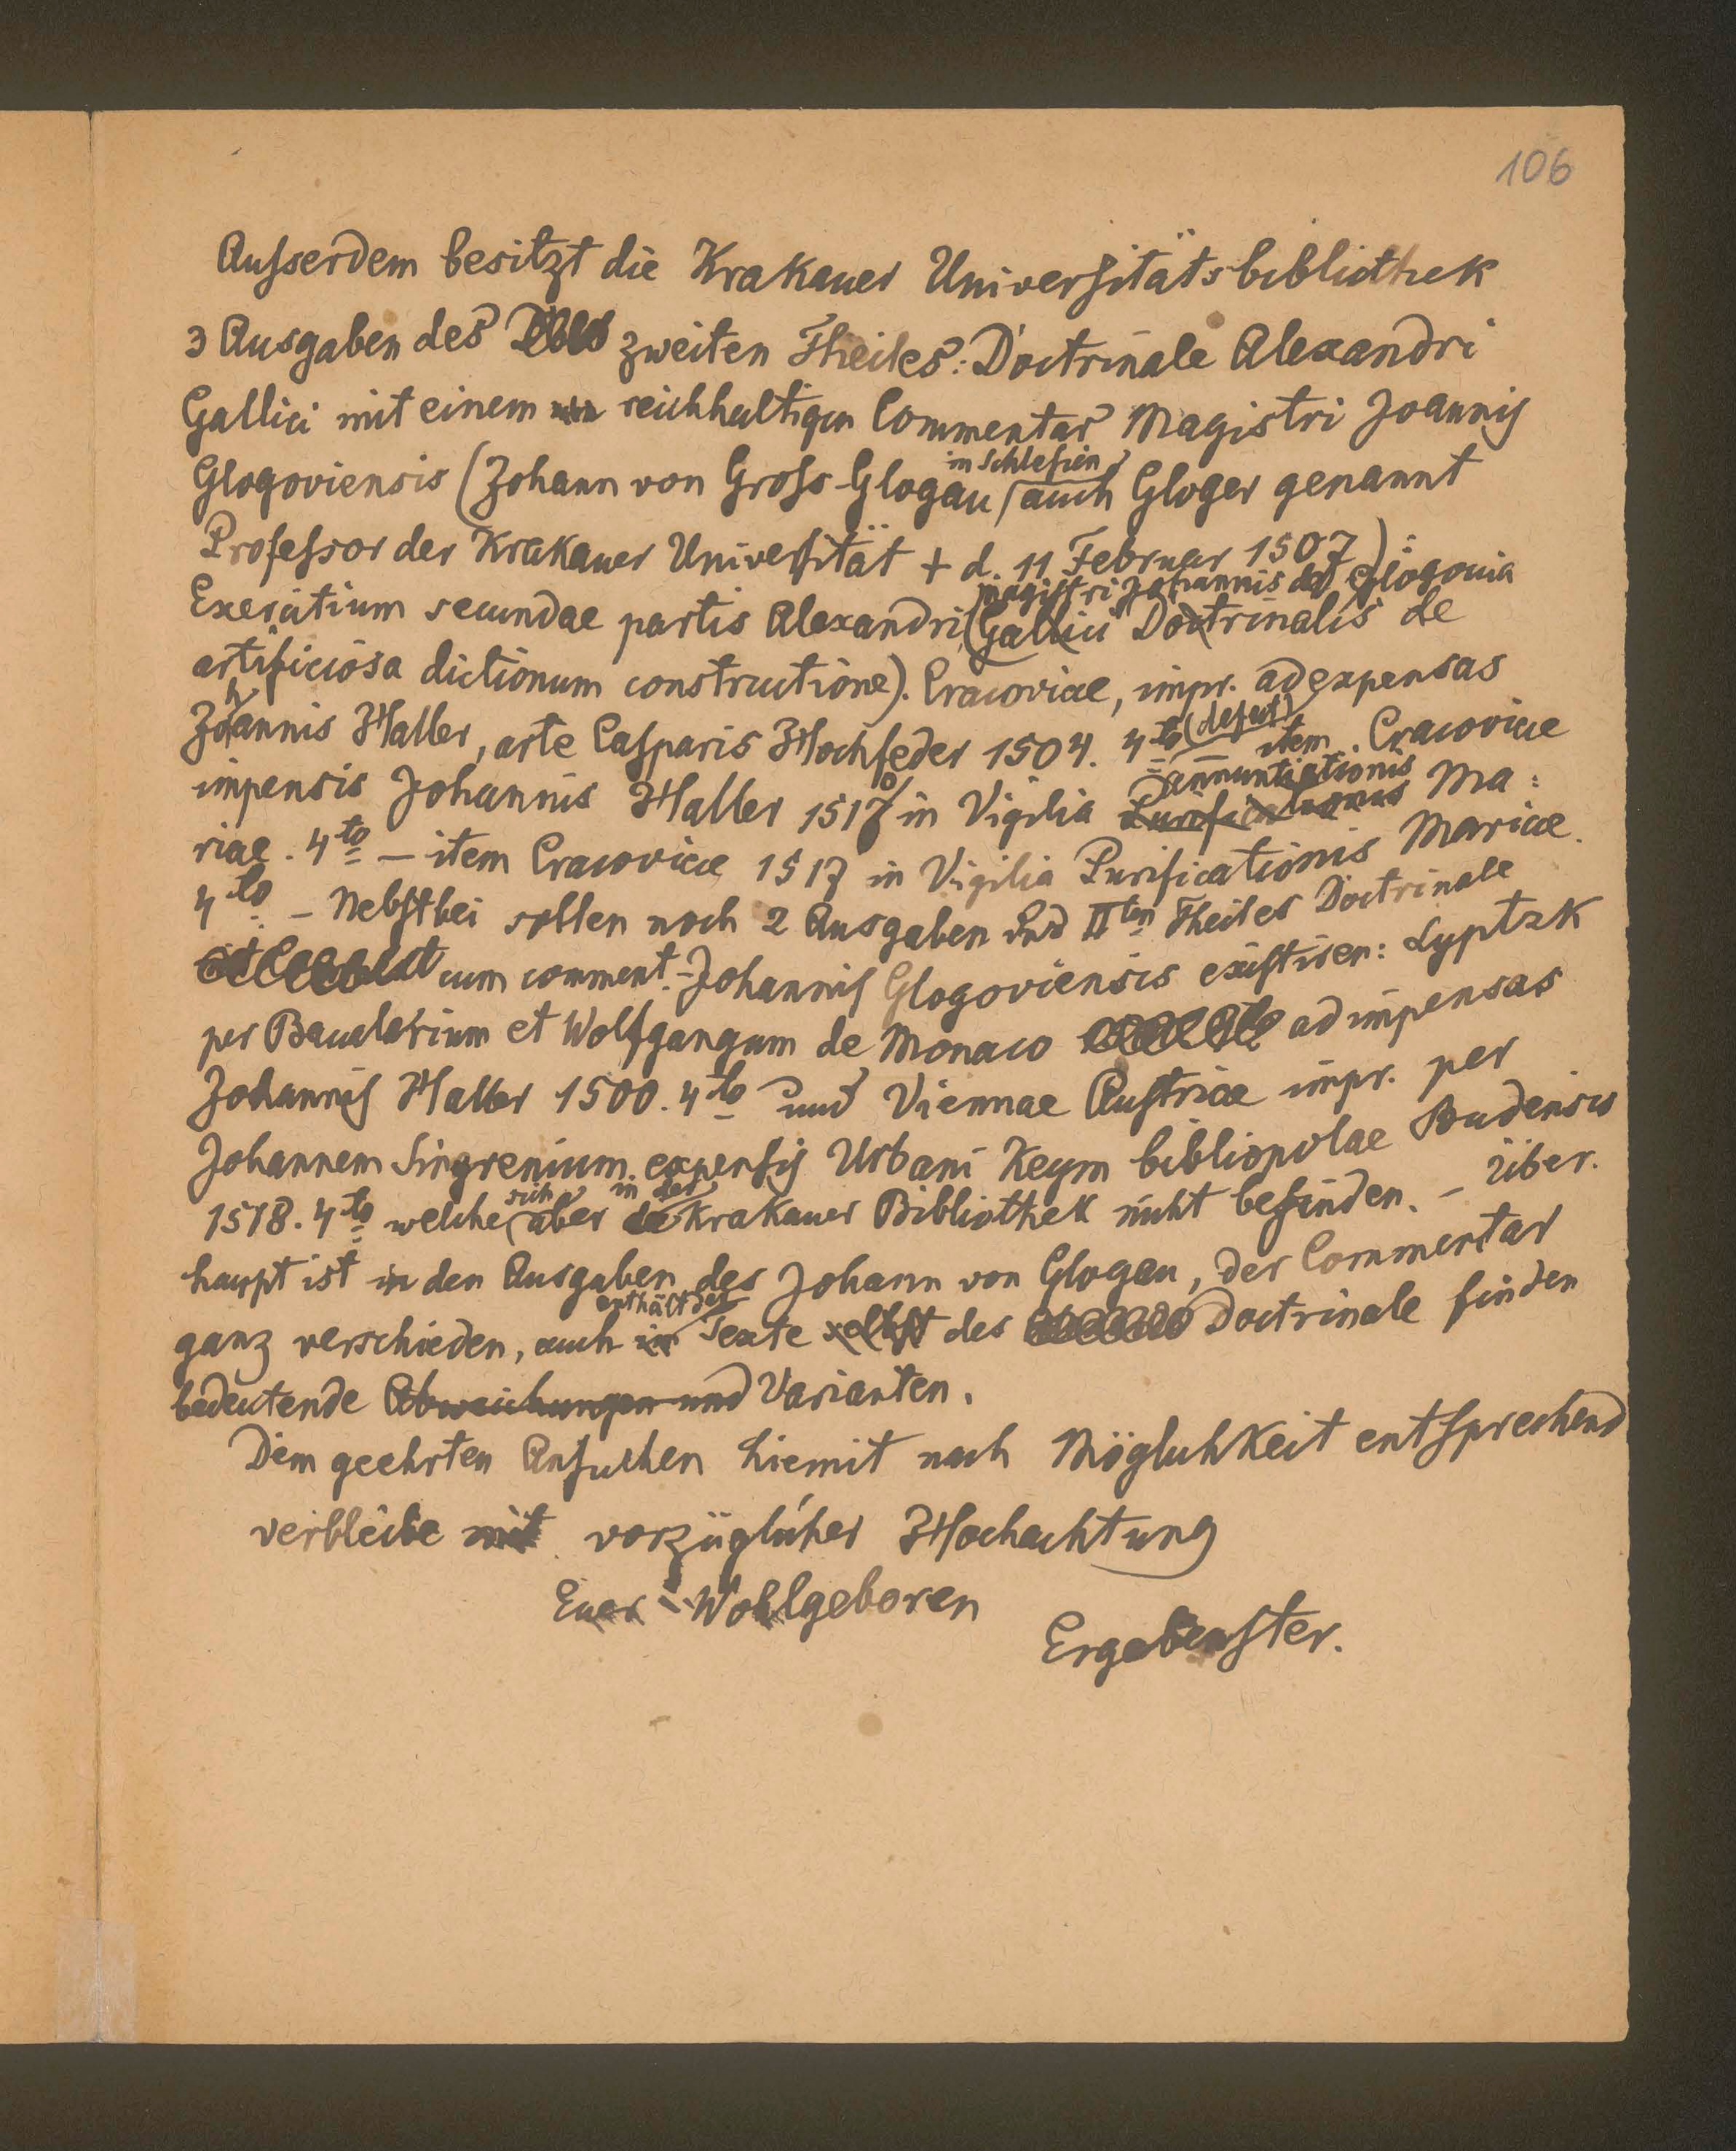 106
Ausserdem besitzt die Krakauer Universitätsbibliothek
3 Ausgaben des zweiten Theiles: Doctrinale Alexandri
Gallici mit einem reichhaltigen Commentar Magistri Joannis
in Schlesien
Glogoviensis (Johann von Gross-Glogau auch Gloger genannt
Professor der Krakauer Universität + d. 11 Februar 1507):
magistri Johannis de Glogovia
Exercitium secundae partis Alexandri (Gallici Doctrinalis de
artificiosa dictionum constructione). Cracoviae, impr. ad expensas
Johannis Haller, arte Casparis Hochfeder 1504. 4to (defect) item Cracoviae
annuntiationis
impensis Johannis Haller 1510 in Vigilia Purificationis Ma:
riae. 4to — item Cracoviae 1517 in Vigilia Purificationis Mariae.
4to. — Nebstbei sollen noch 2 Ausgaben des IIten Theiles Doctrinale
cum comment. Johannis Glogoviensis existiren: Lyptzk
per Baccalarium et Wolfgangum de Monaco ad impensas
Johannis Haller 1500. 4to und Viennae Austriae impr. per
Johannem Singrenium expensis Urbani Keym bibliopolae Budensis
sich in der
1518. 4to welche aber Krakauer Bibliothek nicht befinden. — Über.
haupt ist in den Ausgaben des Johann von Glogau, der Commentar
enthält der
ganz verschieden, auch in Texte selbst des Doctrinale finden
bedeutende Abweichungen und Varianten.
Dem geehrten Ansuchen hiemit nach Möglichkeit entsprechend
verbleibe mit vorzüglicher Hochachtung
Euer Wohlgeboren
Ergebenster.